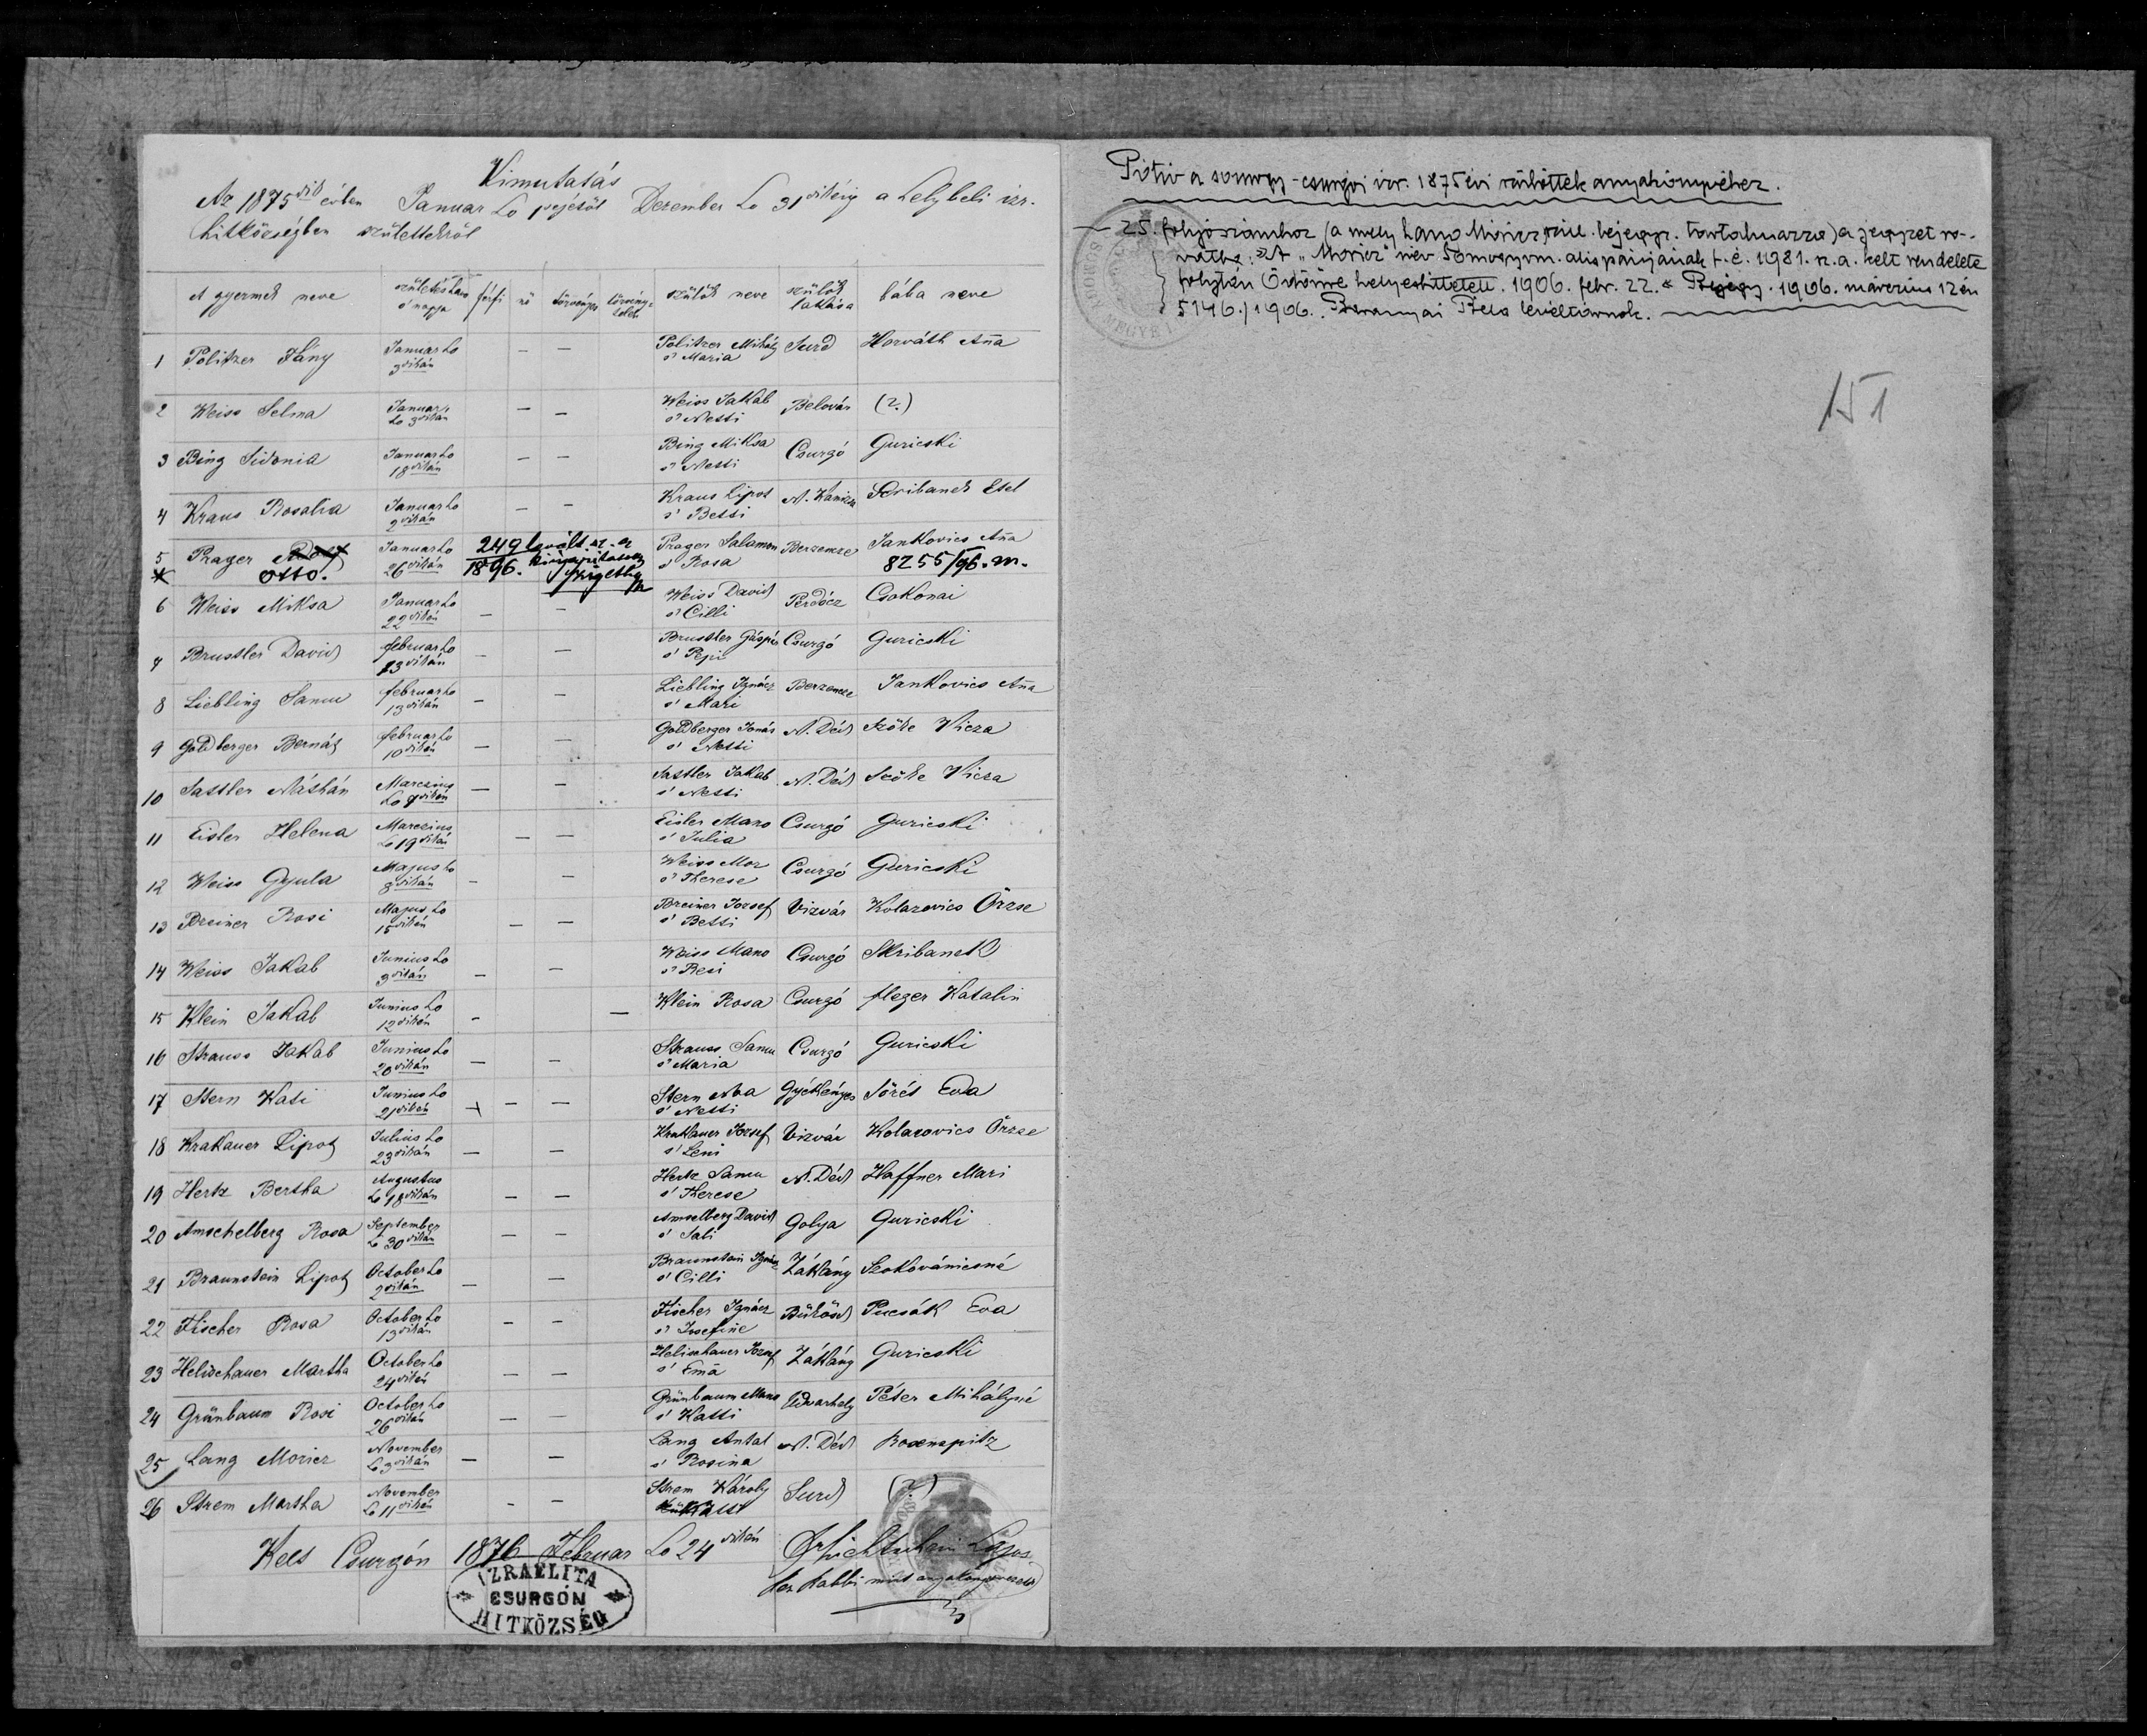 Kimutatás
Az 1875dik évben Januar ho 1ejétöl Dezember ho 31dikéig a helybeli izr.
hitközségben születtekröl
A gyermek neve születés hava s' napja férfi nö törvényes törvénytelen szülök neve szülök lakása bába neve
1 Politzer Fány Januar ho 3dikán — — Politzer Mihály s' Maria Surd Horváth Aña
2 Weiss Selma Januar ho 3dikán — — Weiss Jakab s' Netti Belovár (?)
3 Bing Sidonia Januar ho 18dikán — — Bing Miksa s' Netti Csurgó Guricski
4 Kraus Rosalia Januar ho 2dikán — — Kraus Lipot s' Betti N. Kanizsa Scribanek Etel
5 Prager Adolf Januar ho 26dikán 249 levélt. sz. a Prager Salamon s' Rosa Berzencze Jankovics Aña
* Otto. 1896. 8255/96. m.
6 Weiss Miksa Januar ho 22dikán — — Weiss David s' Cilli Perdócz Csokonai
7 Brustler David februar ho 23dikán — — Brustler Gáspár s' Pepi Csurgó Guricski
8 Liebling Samu februar ho 13dikán — — Liebling Ignácz s' Mari Berzencze Jankovics Aña
9 Goldberger Bernát februar ho 10dikén — — Goldberger Jonás s' Netti N. Déd Szöke Vicza
10 Sattler Náthán Marczius ho 7dikén — — Sattler Jakab s' Netti N. Déd Szöke Vicza
11 Eisler Helena Marczius ho 19dikén — — Eisler Mano s' Julia Csurgó Guricski
12 Weiss Gyula Majus ho 8dikán — — Weiss Mor s' Therese Csurgó Guricski
13 Breiner Rosi Majus ho 15dikén — — Breiner Jozsef s' Betti Vizvár Kolarovics Örzse
14 Weiss Jakab Junius ho 3dikán — — Weiss Mano s' Resi Csurgó Skribanek
15 Klein Jakab Junius ho 12dikén — — Klein Rosa Csurgó fleger Katalin
16 Strauss Jakab Junius ho 20dikán — — Strauss Samu s' Maria Csurgó Guricski
17 Stern Kati Junius ho 21dikén + — — Stern s' Netti Gyékényes Eva
18 Krakauer Lipot Julius ho 23dikán — — Krakauer Jozsef s' Leni Vizvár Kolarovics Örzse
19 Hertz Bertha Augustus ho 18dikán — — Hertz Samu s' Therese N. Déd Haffner Mari
20 Amschelberg Rosa September ho 30dikán — — Amselberg David s' Sali Golya Guricski
21 Braunstein Lipot October ho 2dikán — — Braunstein Ignácz s' Cilli Zákány Szokovánicsné
22 Fischer Rosa October ho 13dikán — — Fischer Ignácz s' Josefine Bükösd Pucsák Eva
23 Helischauer Martha October ho 24dikén — — Helischauer Jozsef s' Emã Zákány Guricski
24 Grünbaum Rosi October ho 26dikán — — Grünbaum Mano s' Katti Udvarhely Péter Mihályné
25 Lang Moricz November ho 3dikán — — Lang Antal s' Rosina N. Déd Rosenspitz
26 Strem Martha November ho 11dikén — — Strem Károly Surd (?)
Kelt Csurgón 1876 Februar ho 24dikén Lajos
Rabbi mint anyakönyvvezetö
IZRAELITA
CSURGÓN
HITKÖZSÉG
Pótív a somogy-csurgói izr. 1875 évi születtek anyakönyvéhez.
— 25. folyószámhoz (a mely Lang Móricz szül. bejegyz. tartalmazza) a jegyzet ro-
vatba: "A "Móricz" név Somogyvm. alispánjának f. é. 1981. n. a. kelt rendelete
folytán Ödönre helyesbittetett. 1906. febr. 22. Bejegy. 1906. márczius 12én
5146./1906. Baranyai Béla levéltárnok.
151